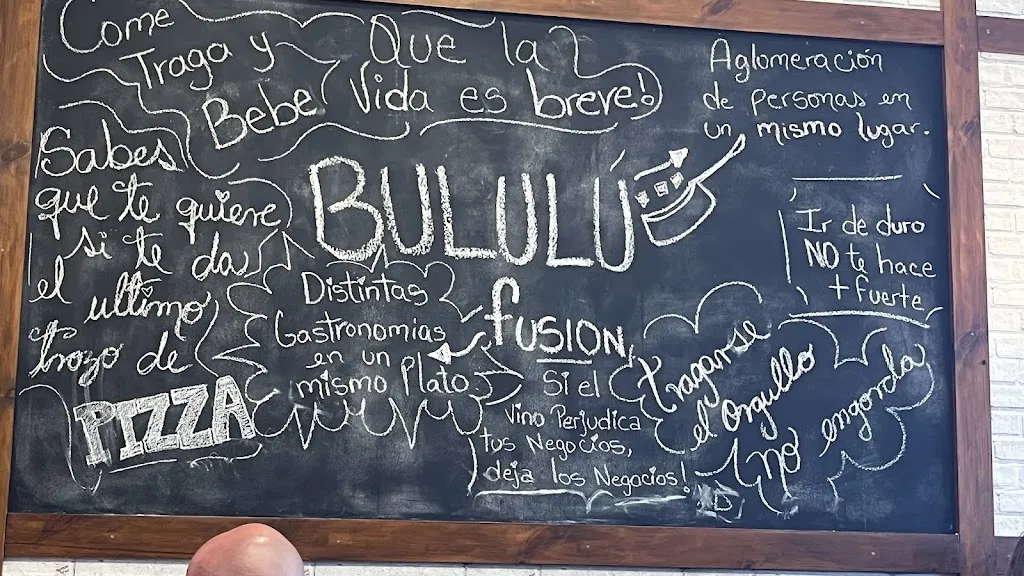 Come
Traga y
Bebe
Que la
Vida es breve!
Aglomeración
de personas en
un mismo lugar.
Sabes
que te quiere
si te da
el ultimo
trozo de
PIZZA
BULULÚ
fusion
Distintas
Gastronomias
en un
mismo Plato
Ir de duro
NO te hace
+ fuerte
Si el
Vino Perjudica
tus Negocios,
deja los Negocios!
tragarse
el orgullo
no engorda